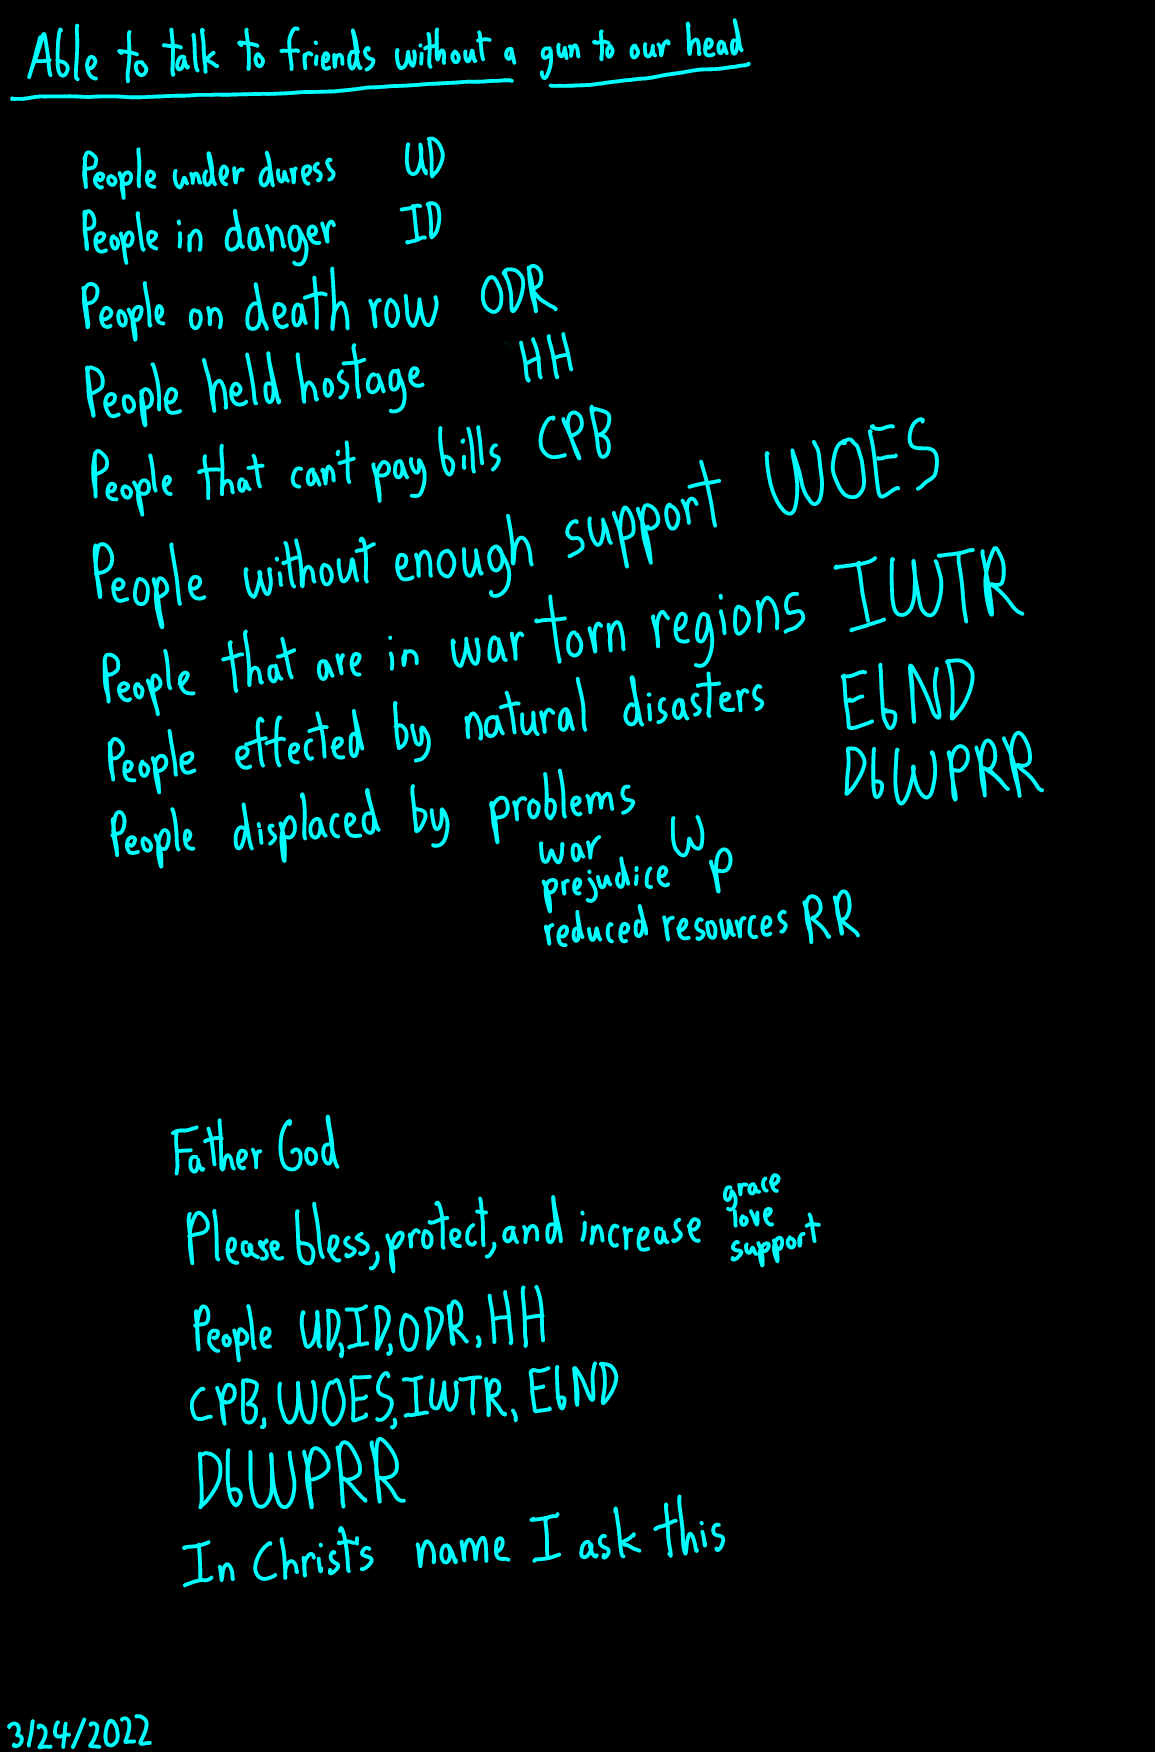 Able to talk to friends without a gun to our head
People under duress UD
People in danger ID
People on death row ODR
People held hostage HH
People that can't pay bills CPB
People without enough support WOES
People that are in war torn regions IWTR
People effected by natural disasters EbND
People displaced by problems DbWPRR
war W
prejudice P
reduced resources RR
Father God
Please bless, protect, and increase grace
love
support
People UD, ID, ODR, HH
CPB, WOES, IWTR, EbND
DbWPRR
In Christ's name I ask this
3/24/2022